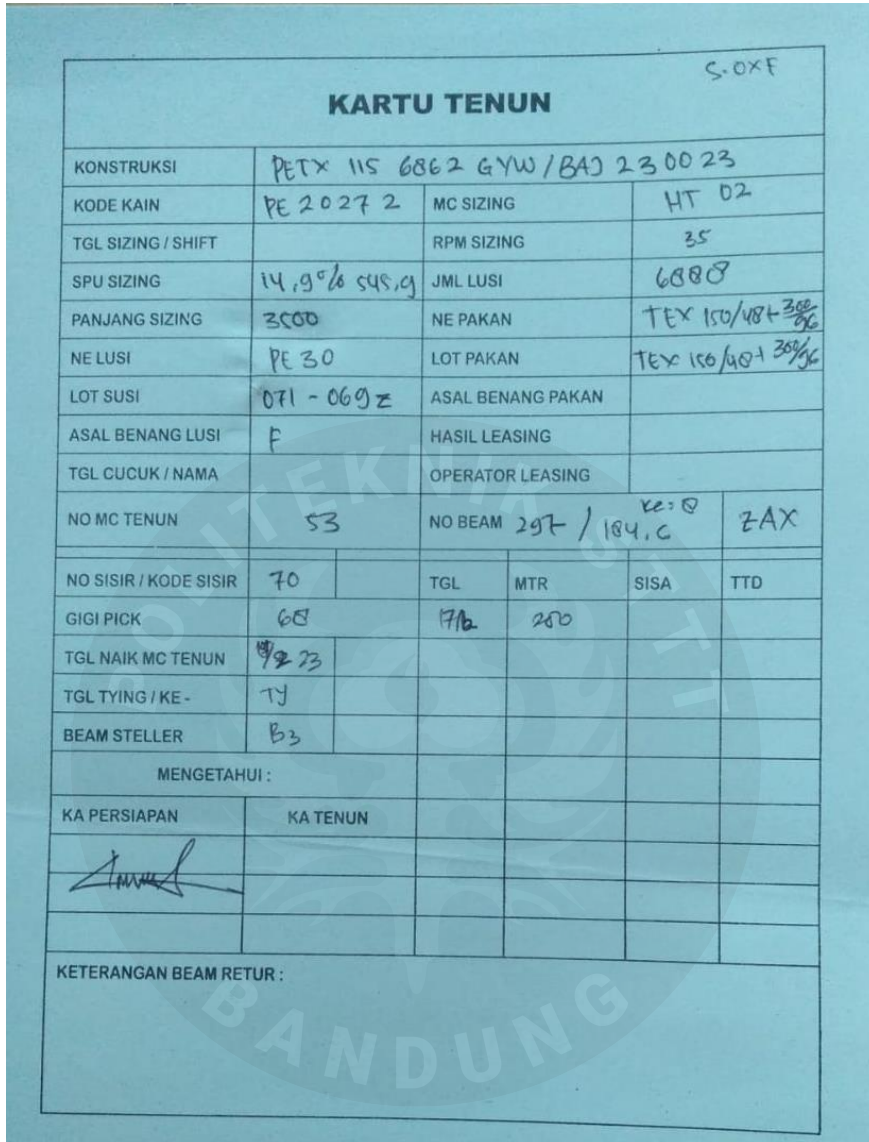 S. OXF
KARTU TENUN
KONSTRUKSI PETX 115 6862 GYW / BAJ 230023
KODE KAIN PE 20272 MC SIZING HT 02
TGL SIZING / SHIFT RPM SIZING 35
SPU SIZING 14,9% 545,9 JML LUSI 6888
PANJANG SIZING 3500 NE PAKAN TEX 150/48 + 300/96
NE LUSI PE 30 LOT PAKAN TEX 150/48 + 300/96
LOT SUSI 071 - 069 Z ASAL BENANG PAKAN
ASAL BENANG LUSI F HASIL LEASING
TGL CUCUK / NAMA OPERATOR LEASING
NO MC TENUN 53 NO BEAM 297 / 184,6 ke: 8 ZAX
NO SISIR / KODE SISIR 70 TGL MTR SISA TTD
GIGI PICK 68 17/2 280
TGL NAIK MC TENUN 23
TGL TYING / KE - TY
BEAM STELLER B3
MENGETAHUI :
KA PERSIAPAN KA TENUN
KETERANGAN BEAM RETUR :
POLITEKNIK STTT
BANDUNG